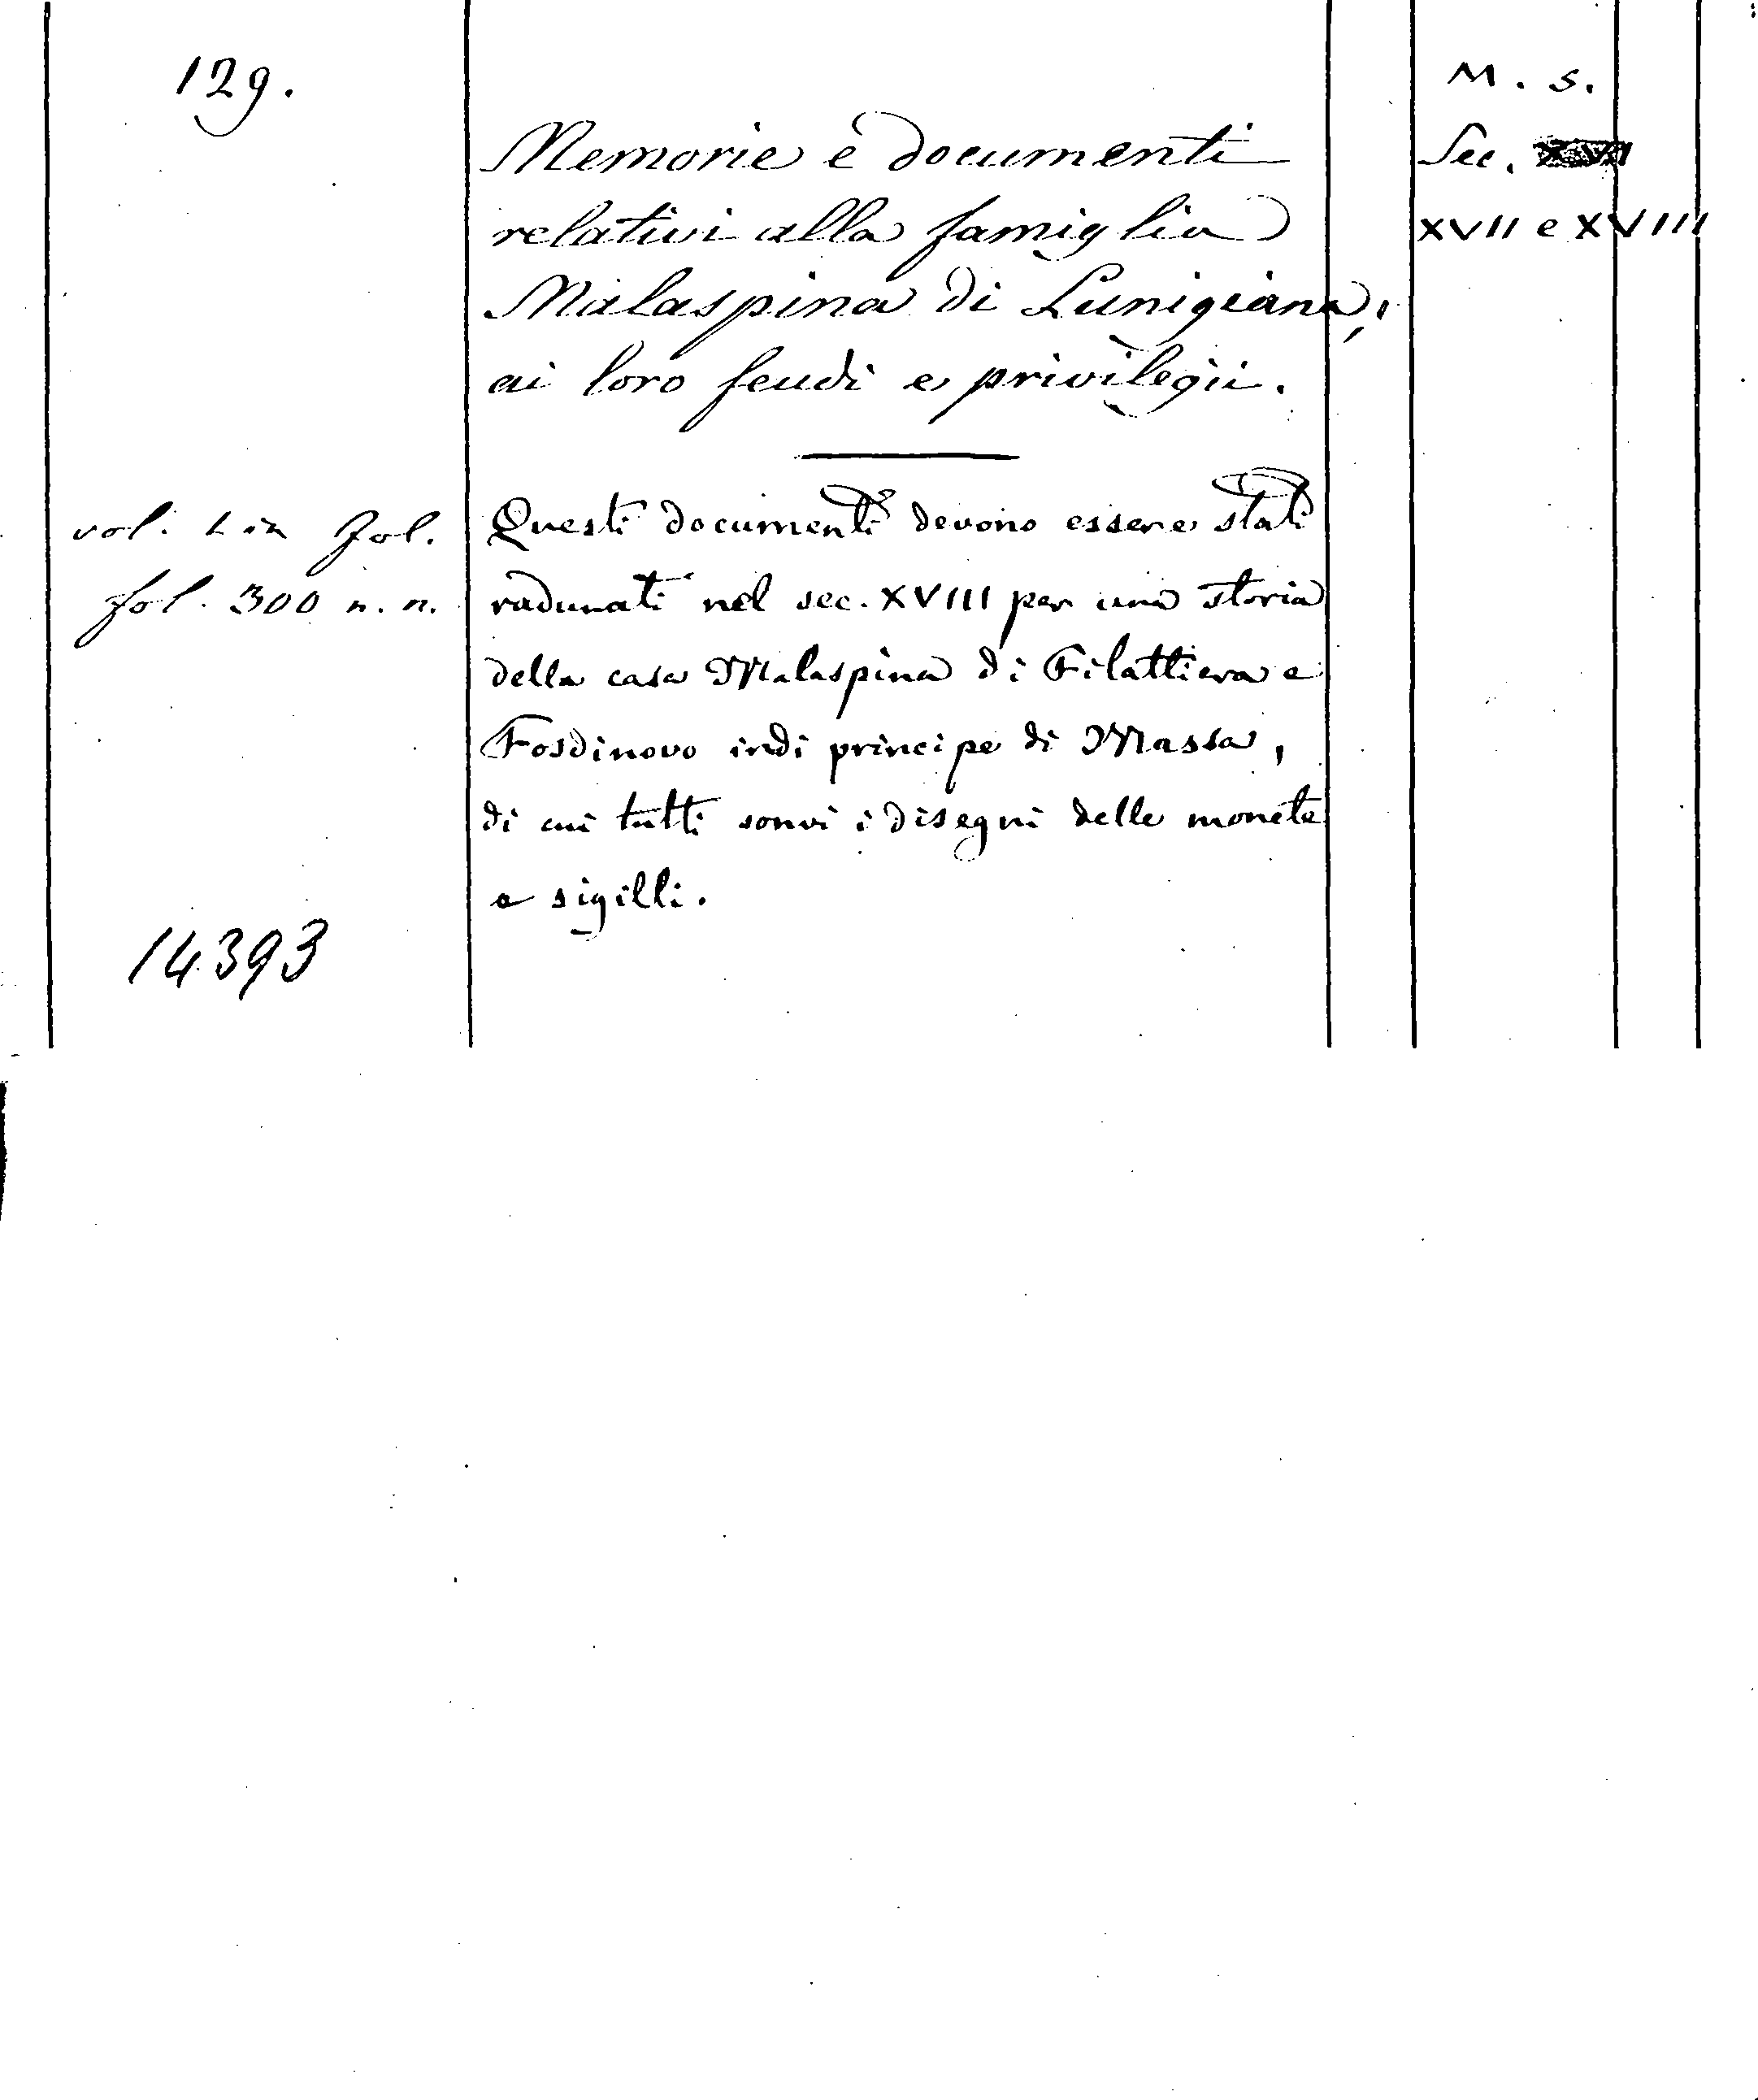 129.
Memorie e documenti
relativi alla famiglia
Malaspina di Lunigiana,
ai loro feudi e privilegii.
M. s.
Sec.
XVII e XVIII
vol. 1 in fol.
fol. 300 n. n.
Questi documenti devono essere stati
radunati nel sec. XVIII per una storia
della casa Malaspina di Filattiera e
Fosdinovo indi principe di Massa,
di cui tutti sonvi i disegni delle monete
e sigilli.
14393